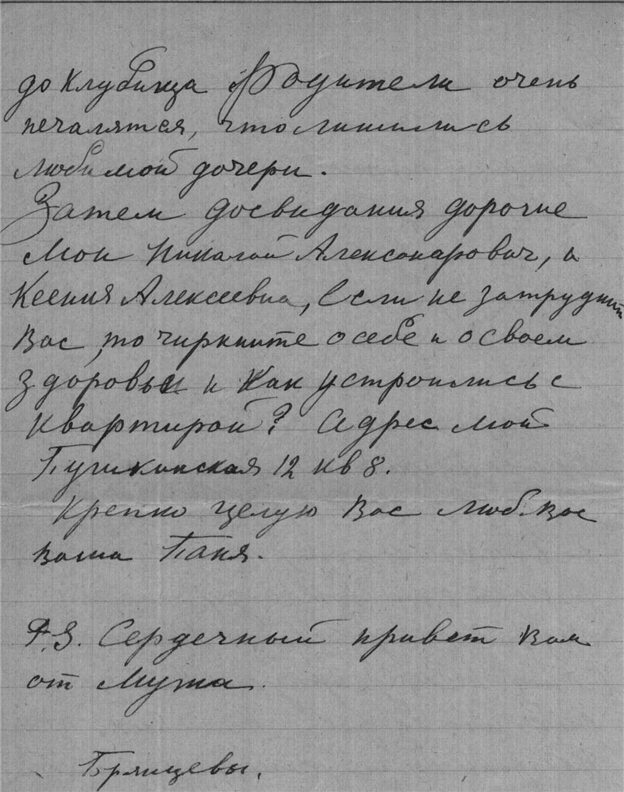 до Клубица Родители очень
печалятся, что лишились
любимой дочери.
Затем досвидания дорогие
мои Николай Александрович, и
Ксения Алексеевна, Если не затруднит
Вас, то черкните о себе и о своем
здоровьи и Как устроились с
квартирой? Адрес мой
Пушкинская 12 кв 8.
Крепко целую Вас Люб. Вас
ваша Паня.
P.S. Сердечный привет Вам
от Мужа.
Брянцевы.